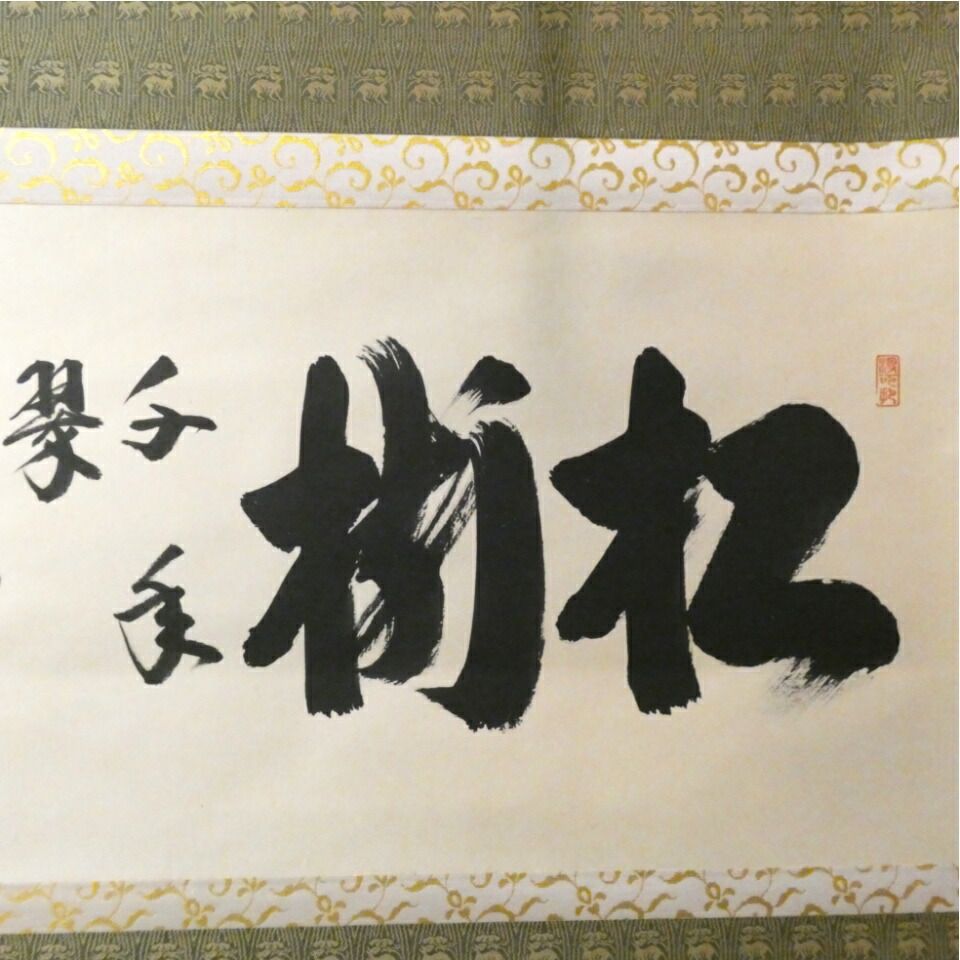 松樹
千年
翠